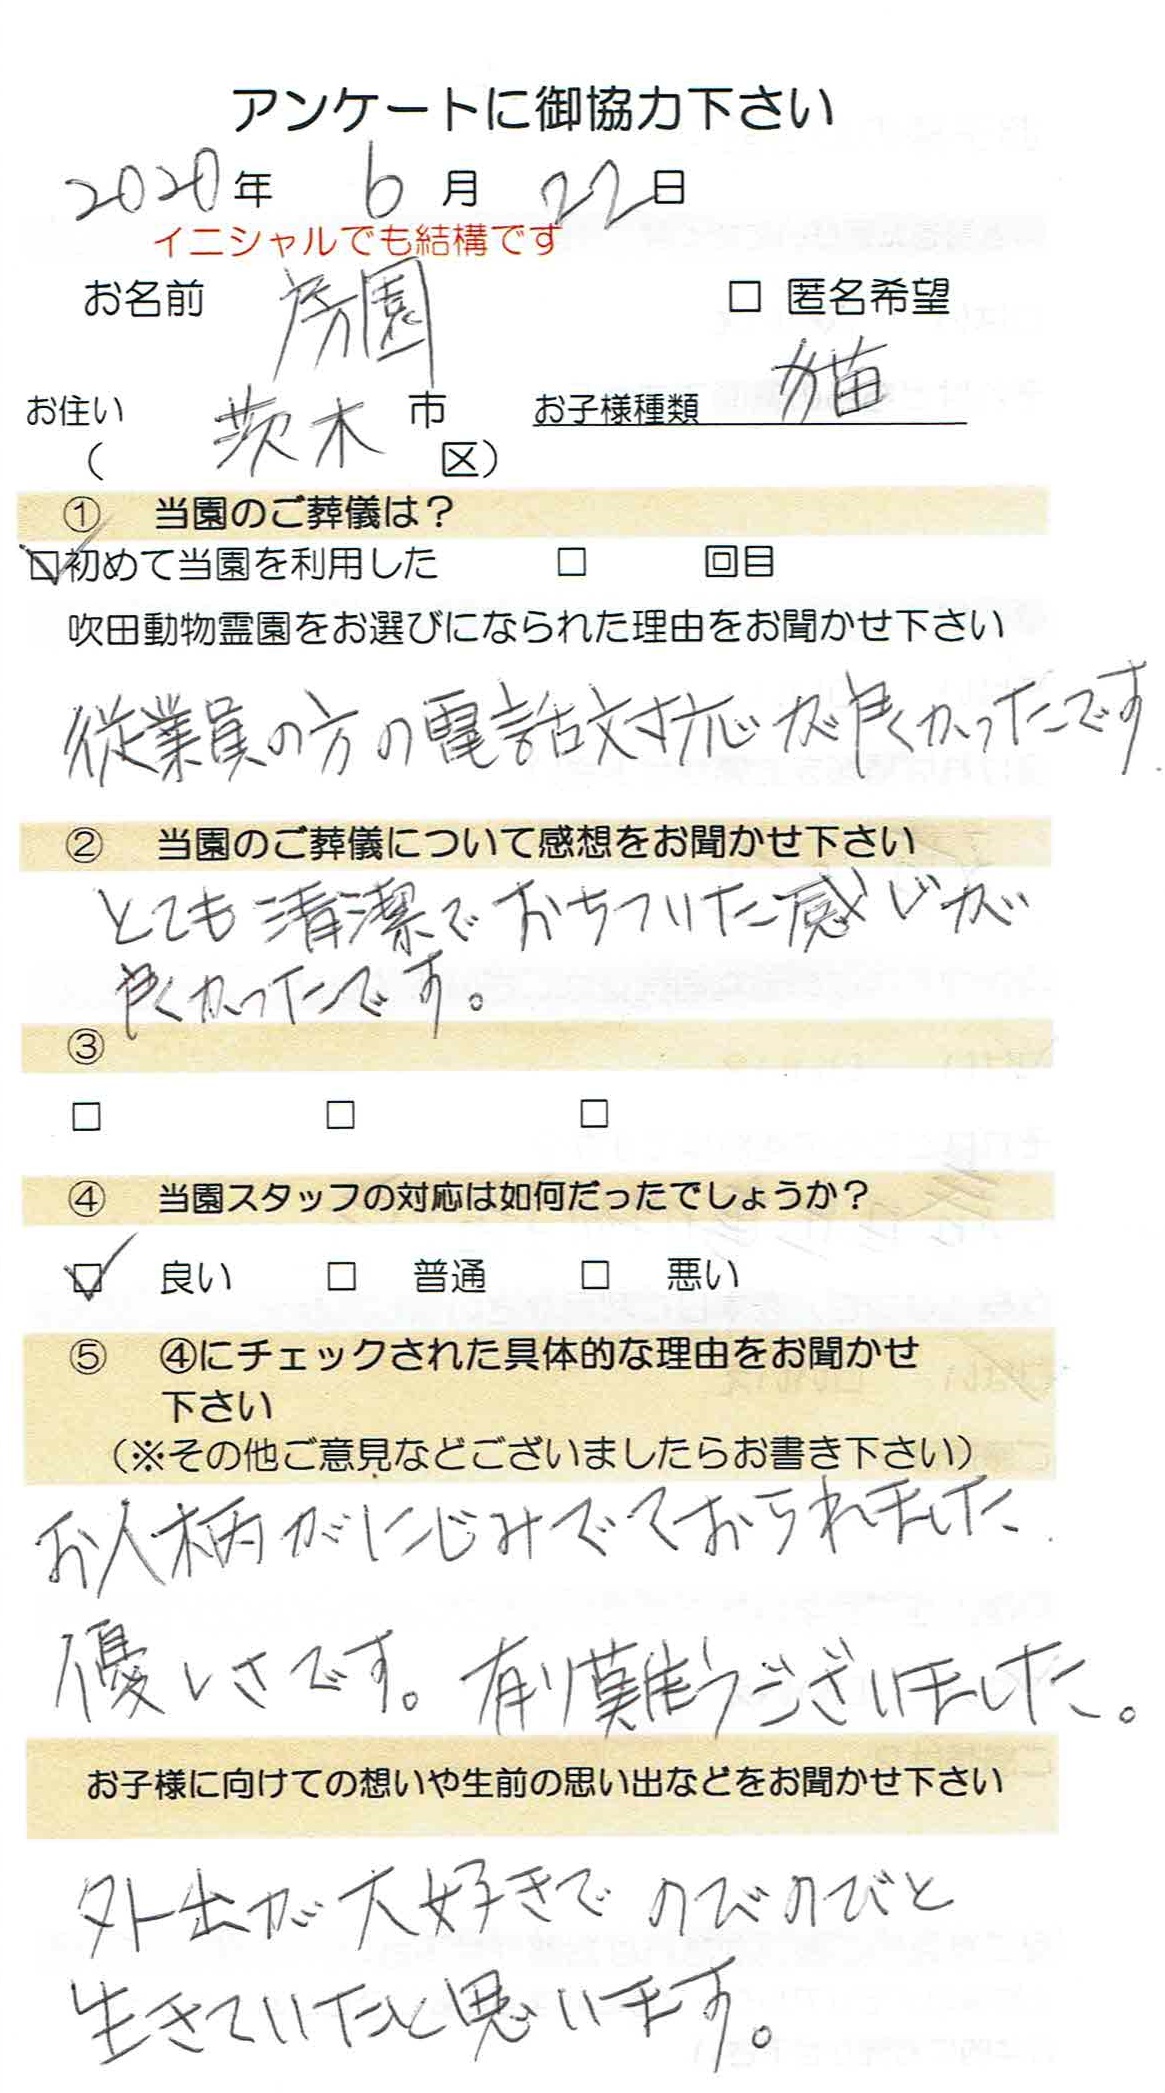 アンケートに御協力下さい
2020年 6月 22日
イニシャルでも結構です
お名前 房園 □ 匿名希望
お住い 茨木 市 お子様種類 猫
( 区)
① 当園のご葬儀は？
☑初めて当園を利用した □ 回目
吹田動物霊園をお選びになられた理由をお聞かせ下さい
従業員の方の電話対応が良くかったです
② 当園のご葬儀について感想をお聞かせ下さい
とても清潔でおちついた感じが
良くかったです。
③
□ □ □
④ 当園スタッフの対応は如何だったでしょうか？
☑ 良い □ 普通 □ 悪い
⑤ ④にチェックされた具体的な理由をお聞かせ
下さい
（※その他ご意見などございましたらお書き下さい）
お人柄がにじみでておられました.
優しさです。有り難うございました。
お子様に向けての想いや生前の思い出などをお聞かせ下さい
外出が大好きでのびのびと
生きていたと思います。